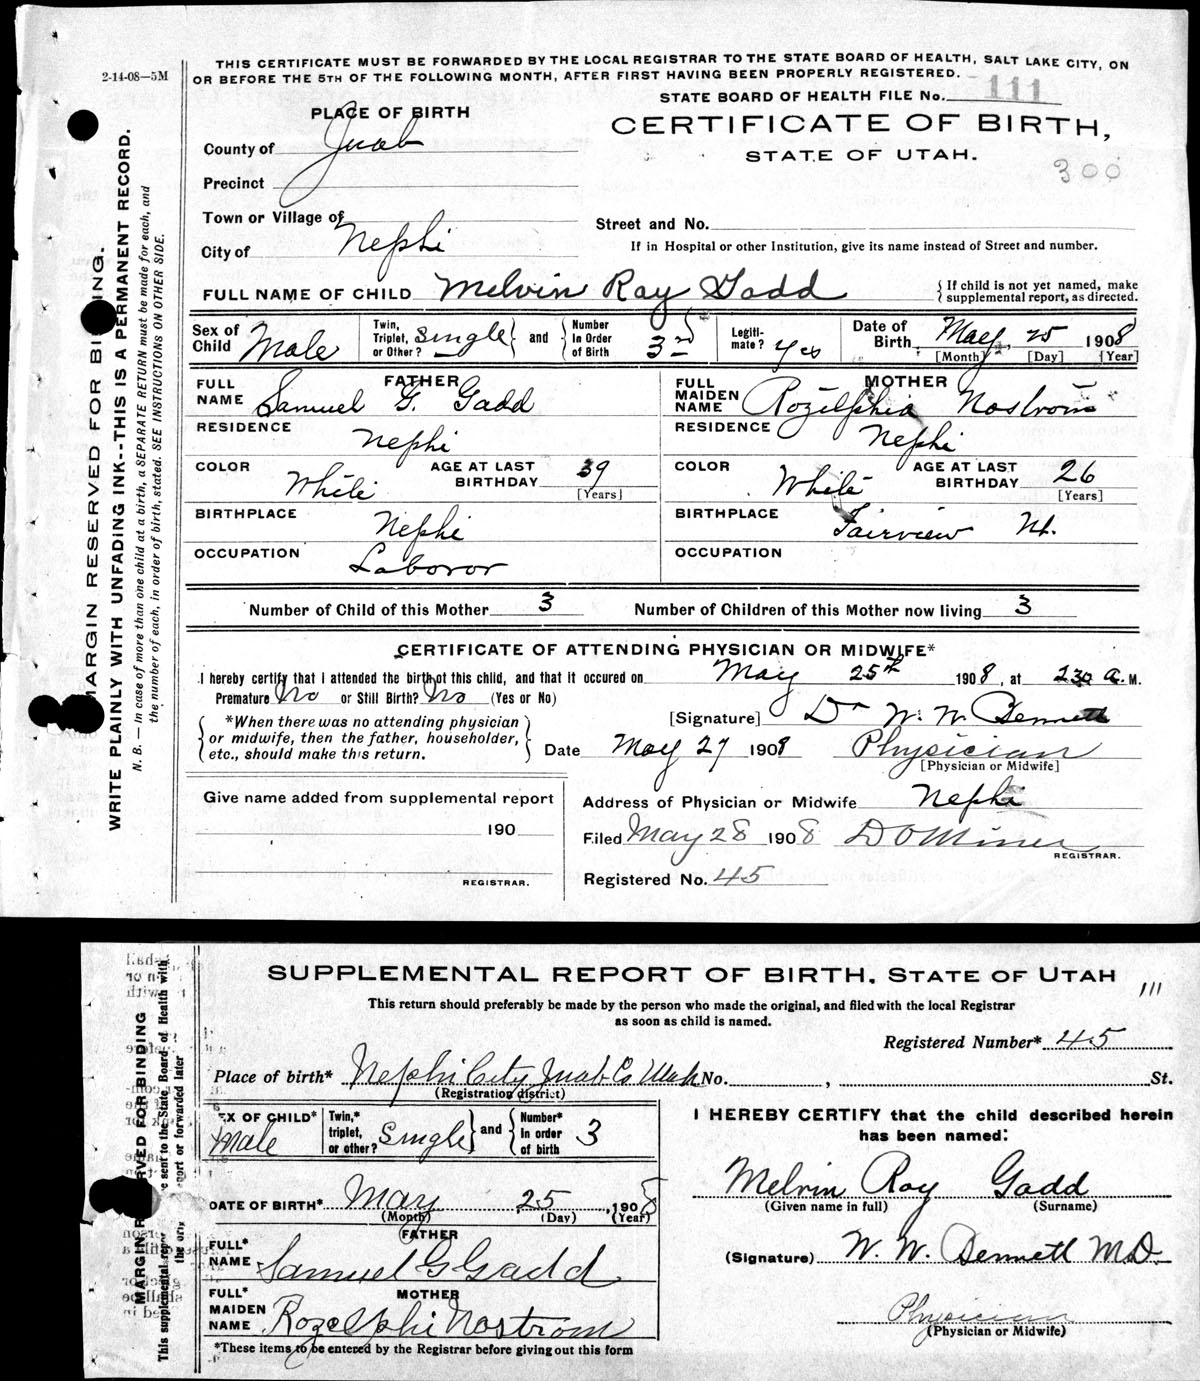 2-14-08—5M
THIS CERTIFICATE MUST BE FORWARDED BY THE LOCAL REGISTRAR TO THE STATE BOARD OF HEALTH, SALT LAKE CITY, ON
OR BEFORE THE 5TH OF THE FOLLOWING MONTH, AFTER FIRST HAVING BEEN PROPERLY REGISTERED.
STATE BOARD OF HEALTH FILE No. 111
PLACE OF BIRTH
CERTIFICATE OF BIRTH,
STATE OF UTAH.
300
County of Juab
Precinct
Town or Village of
Street and No.
City of Nephi
If in Hospital or other Institution, give its name instead of Street and number.
FULL NAME OF CHILD Melvin Ray Gadd
{ If child is not yet named, make
supplemental report, as directed.
Sex of Child Male
Twin, Triplet, or Other? Single } and { Number In Order of Birth 3rd
Legiti-mate? Yes
Date of Birth May 25 1908
[Month] [Day] [Year]
FATHER
FULL NAME Samuel G. Gadd
MOTHER
FULL MAIDEN NAME Rozelphia Nostrom
RESIDENCE Nephi
RESIDENCE Nephi
COLOR White AGE AT LAST BIRTHDAY 39 [Years]
COLOR White AGE AT LAST BIRTHDAY 26 [Years]
BIRTHPLACE Nephi
BIRTHPLACE Fairview Ut.
OCCUPATION Laboror
OCCUPATION
Number of Child of this Mother 3 Number of Children of this Mother now living 3
CERTIFICATE OF ATTENDING PHYSICIAN OR MIDWIFE*
I hereby certify that I attended the birth of this child, and that it occured on May 25th 1908, at 230 a.M.
Premature? No or Still Birth? No (Yes or No)
{ *When there was no attending physician
or midwife, then the father, householder,
etc., should make this return. }
[Signature] Dr W. W. Bennett
Date May 27 1908 Physician
[Physician or Midwife]
Give name added from supplemental report
190
REGISTRAR.
Address of Physician or Midwife Nephi
Filed May 28 1908 D O Miner
REGISTRAR.
Registered No. 45
MARGIN RESERVED FOR BINDING.
WRITE PLAINLY WITH UNFADING INK--THIS IS A PERMANENT RECORD.
N. B. — In case of more than one child at a birth, a SEPARATE RETURN must be made for each, and
the number of each, in order of birth, stated. SEE INSTRUCTIONS ON OTHER SIDE.
SUPPLEMENTAL REPORT OF BIRTH, STATE OF UTAH
111
This return should preferably be made by the person who made the original, and filed with the local Registrar
as soon as child is named.
Registered Number* 45
Place of birth* Nephi City Juab Co Utah No. , St.
(Registration district)
SEX OF CHILD* Male
Twin,* triplet, or other? Single } and { Number* In order of birth 3
DATE OF BIRTH* May 25 1908
(Month) (Day) (Year)
FATHER
FULL* NAME Samuel G Gadd
MOTHER
FULL* MAIDEN NAME Rozelphi Nostrom
*These items to be entered by the Registrar before giving out this form
I HEREBY CERTIFY that the child described herein
has been named:
Melvin Ray Gadd
(Given name in full) (Surname)
(Signature) W. W. Bennett M.D.
Physician
(Physician or Midwife)